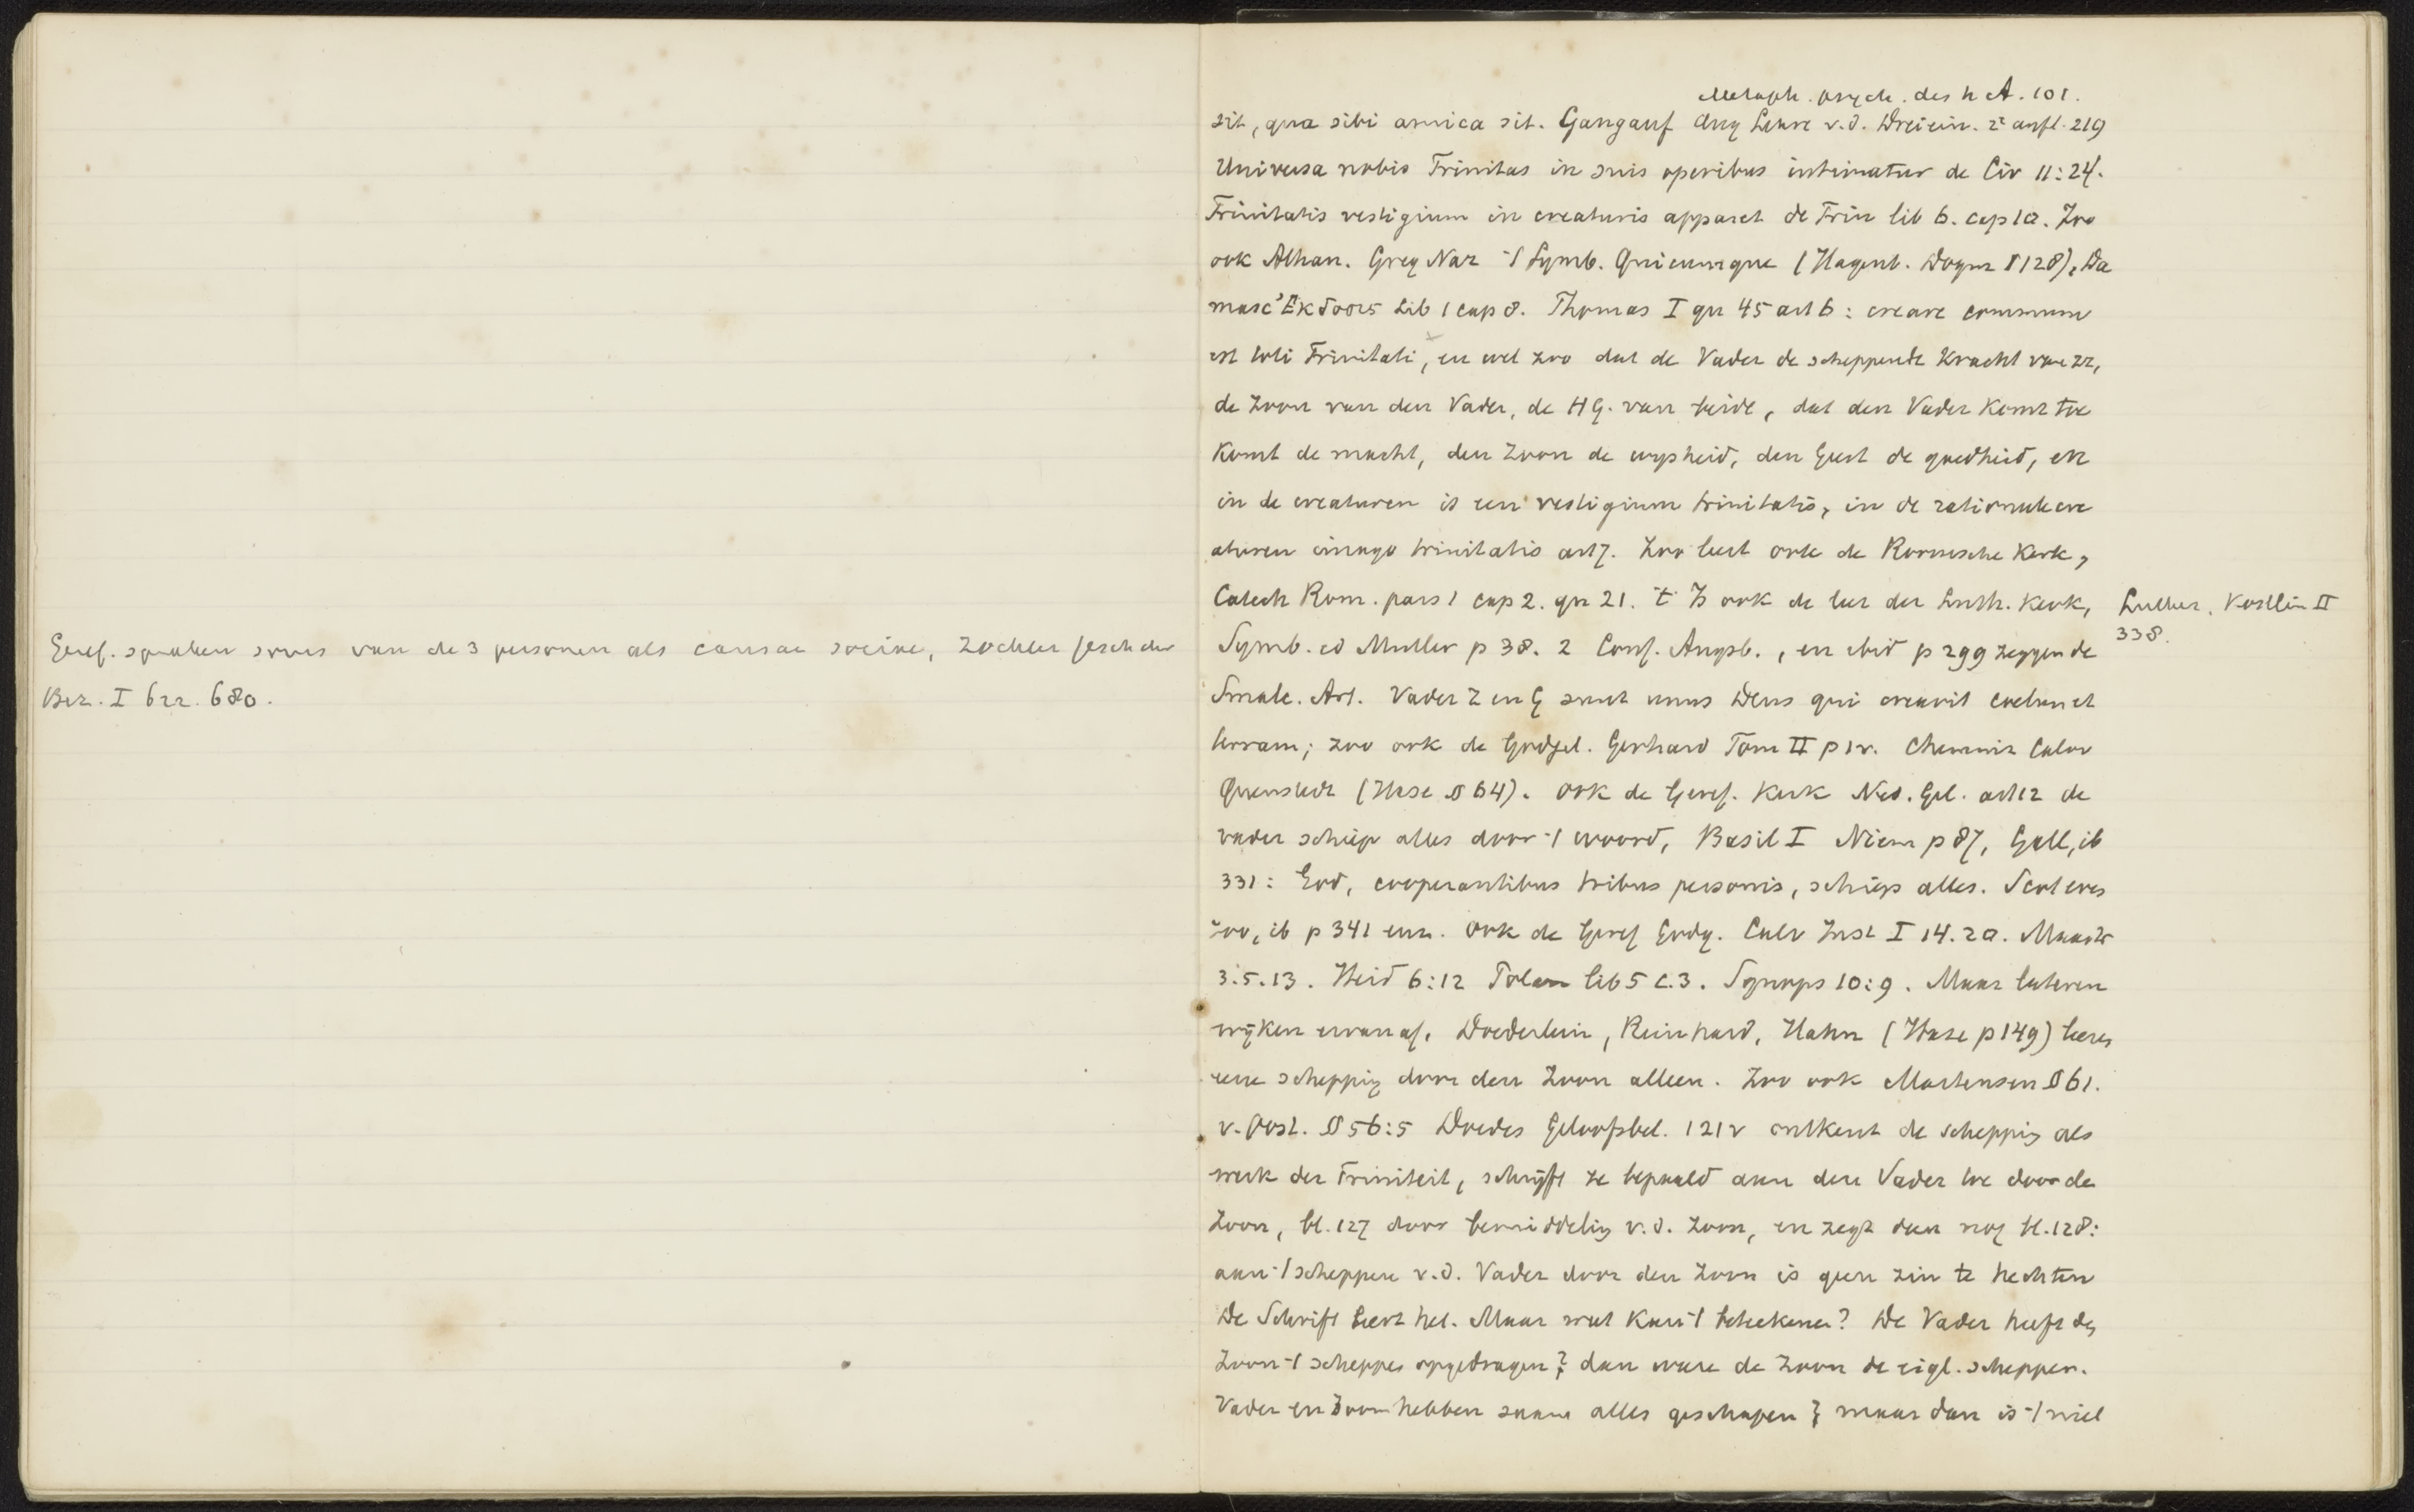 Geref. spraken soms van de 3 personen als causae sociae, Zöckler Gesch der
Bez. I 622. 680.
Metaph. psych. des h A. 101.
sit, qua sibi amica sit. Gangauf Aug Lehre v.d. Dreiein. 2e aufl. 219
Universa nobis Trinitas in suis operibus intimatur de Civ 11:24.
Trinitatis vestigium in creaturis apparet de Trin lib 6. cap 10. Zoo
ook Athan. Greg Naz 't Symb. Quicumque (Hagenb. Dogm § 128), Da
masc Ἐκδοσις Lib 1 cap 8. Thomas I qu 45 art 6: creare commune
est toti Trinitati, en wel zoo dat de Vader de scheppende kracht van zz,
de Zoon van den Vader, de HG. van beide, dat den Vader komt toe
komt de macht, den Zoon de wijsheid, den Geest de goedheid, en
in de creaturen is een vestigium trinitatis, in de rationele cre
aturen imago trinitatis art 7. Zoo leert ook de Roomsche Kerk,
Catech Rom. pars 1 cap 2. qu 21. 't Is ook de leer der Luth. Kerk,
Luther, Köstlin II
338.
Symb. ed Muller p 38. 2 Conf. Augsb., en ibid p 299 zeggen de
Smalc. Art. Vader Z en G sunt unus Deus qui creavit coelum et
terram; zoo ook de Godgel. Gerhard Tom II p 1v. Chemniz Calov
Quenstedt (Hase § 64). Ook de Geref. Kerk Ned. Gel. art 12 de
vader schiep alles door 't woord, Basil I Niem p 87, Gall, ib
331: God, cooperantibus tribus personis, schiep alles. Scot eves
zoo, ib p 341 enz. Ook de Geref Godg. Calv Inst I 14. 20. Maastr
3.5.13. Heid 6:12 Polan lib 5 c.3. Synops 10:9. Maar lateren
wijken ervan af. Doederlein, Reinhard, Hahn (Hase p 149) leeren
eene schepping door den Zoon alleen. Zoo ook Martensen § 61.
v. Oost. § 56:5 Doedes Geloofsbel. 121v ontkent de schepping als
werk der Triniteit, schrijft ze bepaald aan den Vader toe door de
Zoon, bl. 127 door bemiddeling v.d. Zoon, en zegt dan nog bl. 128:
aan 't scheppen v.d. Vader door den Zoon is geen zin te hechten
De Schrift leert het. Maar wat kan 't beteekenen? De Vader heeft den
Zoon 't scheppen opgedragen? dan ware de Zoon de eigl. schepper.
Vader en Zoon hebben saam alles geschapen? maar dan is 't niet